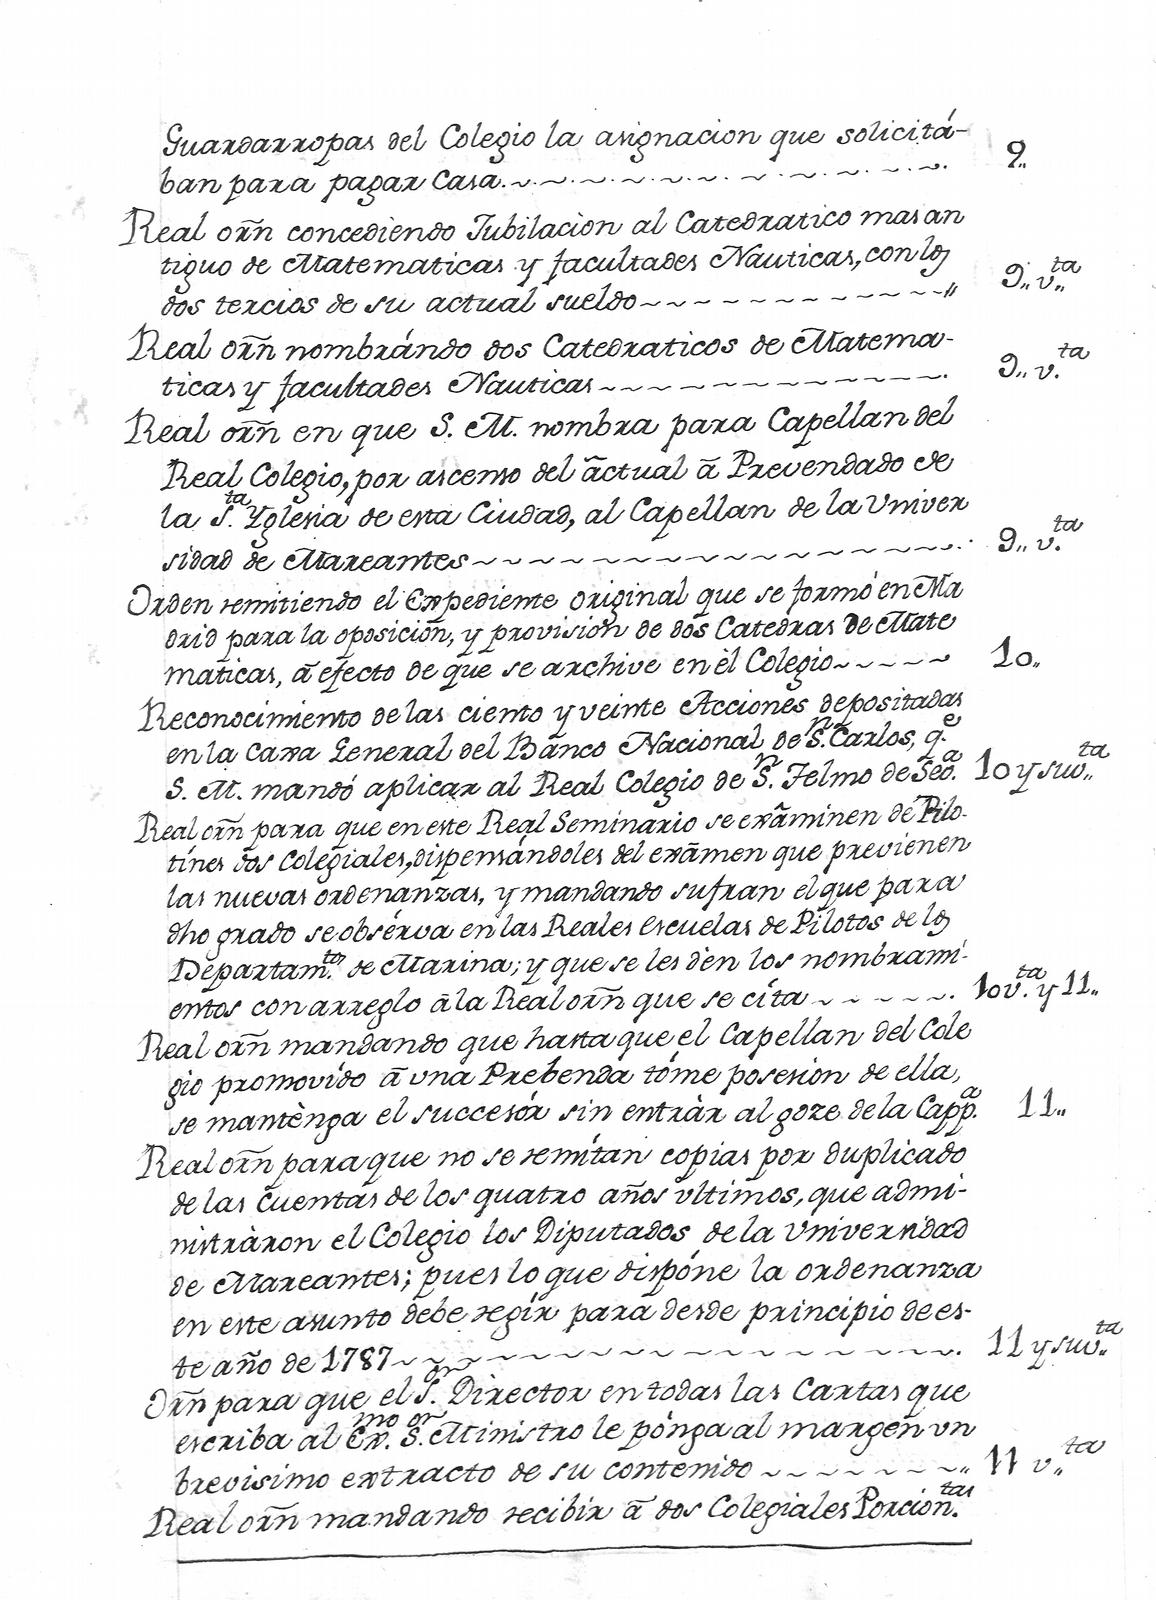 Guardarropas del Colegio la asignacion que solicitá-
ban para pagar Casa. 9.,
Real orñ concediendo Jubilacion al Catedratico mas an
tiguo de Matematicas y facultades Nauticas, con los
dos tercios de su actual sueldo 9., v.ta
Real orñ nombrándo dos Catedraticos de Matema-
ticas y facultades Nauticas 9., v.ta
Real orñ en que S. M. nombra para Capellan del
Real Colegio, por ascenso del ãctual ã Prevendado de
la S.ta Yglesia de esta Ciudad, al Capellan de la Univer
sidad de Mareantes 9., v.ta
Orden remitiendo el Expediente original que se formó en Ma
drid para la oposición, y provisión de dos Catedras de Mate
maticas, ã efecto de que se archive en èl Colegio 10.,
Reconocimiento de las ciento y veinte Acciones depositadas
en la Caxa General del Banco Nacional de S.n Carlos, q.e
S. M. mandó aplicar al Real Colegio de S.n Telmo de Sev.a 10 y su v.ta
Real orñ para que en este Real Seminario se exãminen de Pilo-
tínes dos Colegiales, dispensándoles del exãmen que previenen
las nuevas ordenanzas, y mandando sufran el que para
dho grado se obsérva en las Reales Escuelas de Pilotos de los
Departam.tos de Marina; y que se les dèn los nombrami-
entos con arreglo ã la Real orñ que se cíta 10 v.ta y 11.,
Real orñ mandando que hasta que el Capellan del Cole
gio promovído ã una Prebenda tóme posesion de ella,
se mantènga el succesór sin entràr al goze de la Capp.a 11.,
Real orñ para que no se remítan copias por duplicado
de las Cuentas de los quatro años vltimos, que admi-
nistràron el Colegio los Diputados de la Vniversidad
de Mareantes; pues lo que dispóne la ordenanza
en este asunto debe regír para desde principio de es-
te año de 1787 11 y su v.ta
Orñ para que el S.or Director en todas las Cartas que
escriba al Ex.mo S.or Ministro le pónga al margen vn
brevisimo extracto de su contenido 11 v.ta
Real orñ mandando recibir ã dos Colegiales Porcion.tas